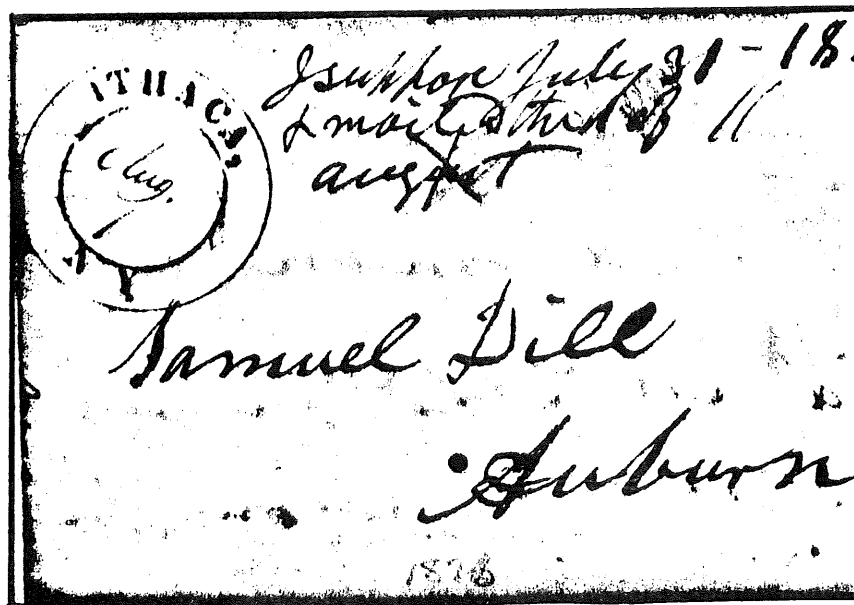 ITHACA,
Aug.
N Y
I suppose July 31 - 18
& mailed the 1 of
august
Samuel Dill
Auburn